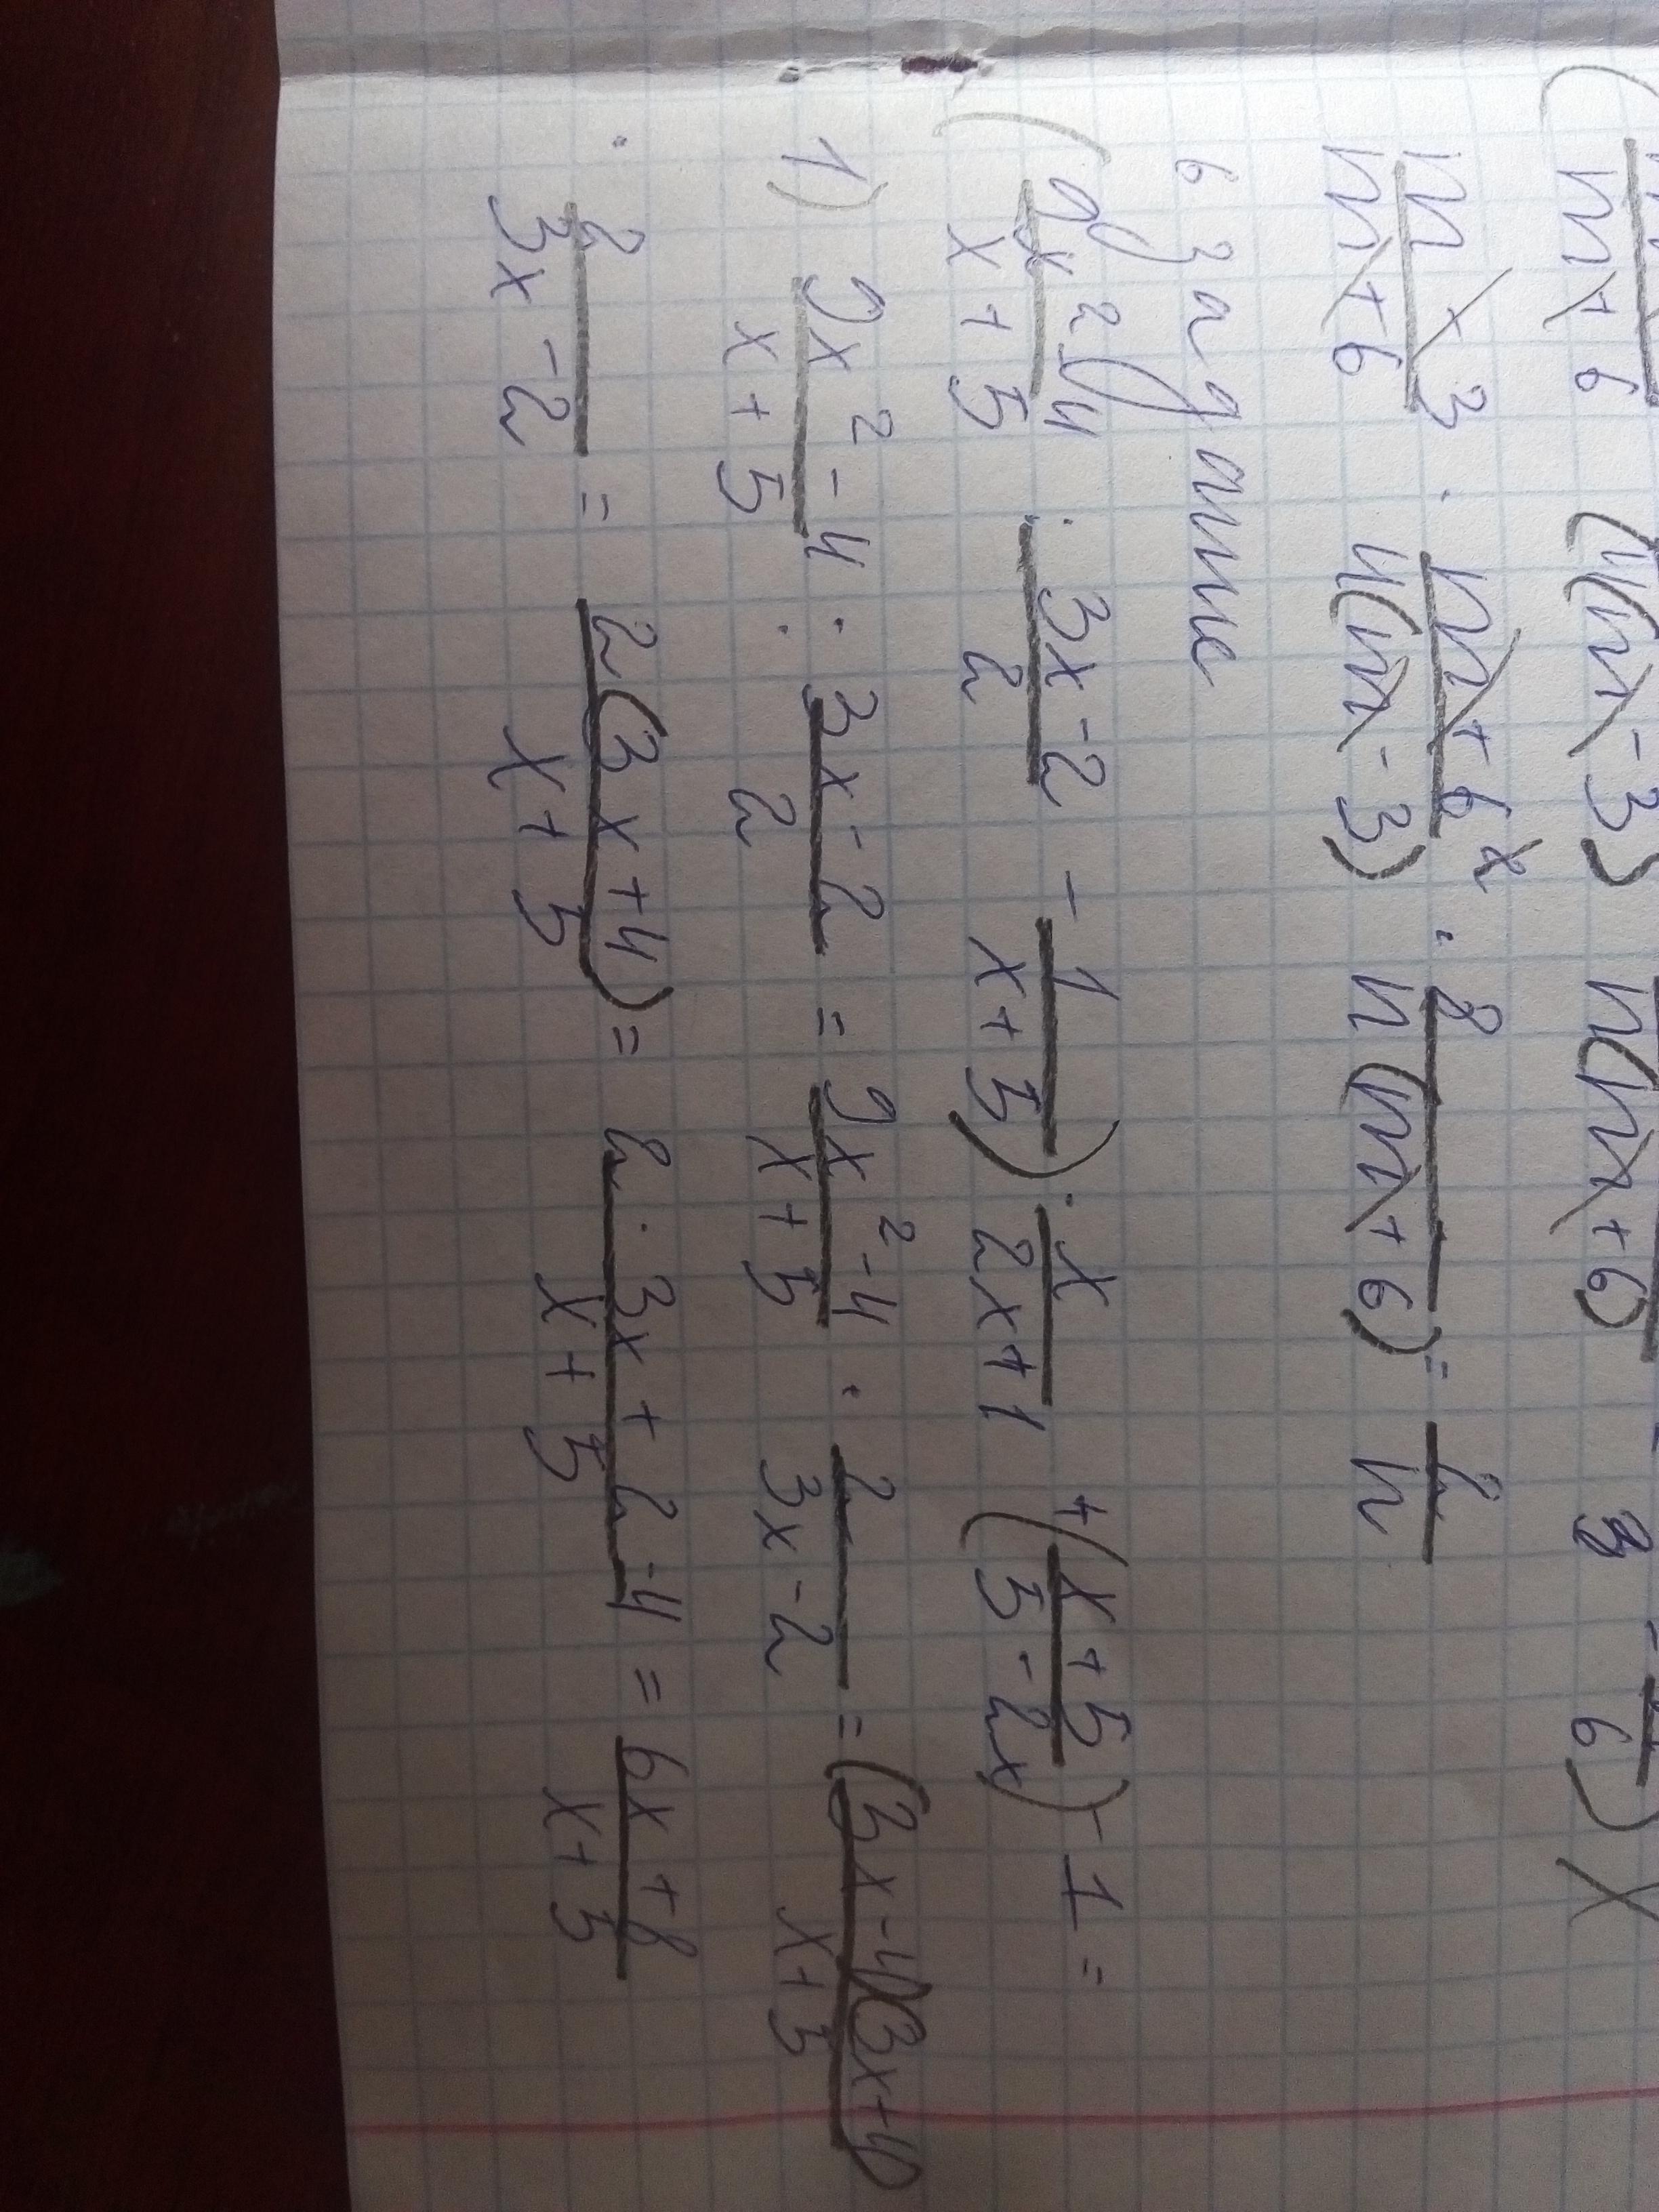 m+3/m+6 · m+6/4(m-3) · 8/n(m+6) = 2/n
6 задание
(9x²-4/x+5 : 3x-2/2 - 1/x+5) · x/2x+1 + (x+5/5-2x) - 1 =
1) 9x²-4/x+5 : 3x-2/2 = 9x²-4/x+5 · 2/3x-2 = (3x-4)(3x+4)/x+5
· 2/3x-2 = 2(3x+4)/x+5 = 2·3x+2·4/x+5 = 6x+8/x+5